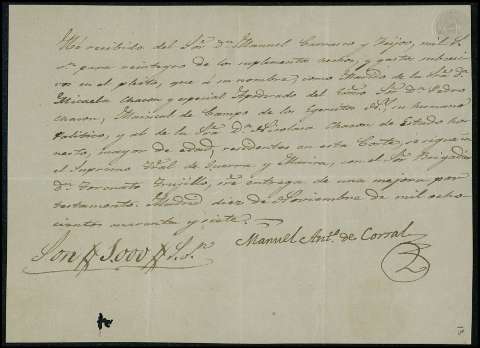 He recibido del Sor. Dn. Manuel Carnero y Feijoo, mil Rs.
Vn. para reintegro de los suplementos hechos, y gastos
en el pleito, que á su nombre, como Marido de la Sra. Da.
Micaela Chacon y especial Apoderado del Sor. Dn. Pedro
Chacon, Mariscal de Campo de los Egercitos su hermano
Politico, y de la Sra. Da. Nicolasa Chacon de Estado ho-
nesto, mayor de edad, residentes en esta Corte, se sigue en
el Supremo Tral. de Guerra y Marina, con el Sor. Brigadier
Dn. Torcuato Trujillo, sre. entrega de una mejora por
testamento. Madrid diez de Noviembre de mil ocho-
cientos cuarenta y siete.
Son # 1.000 #
Manuel Anto. de Corral